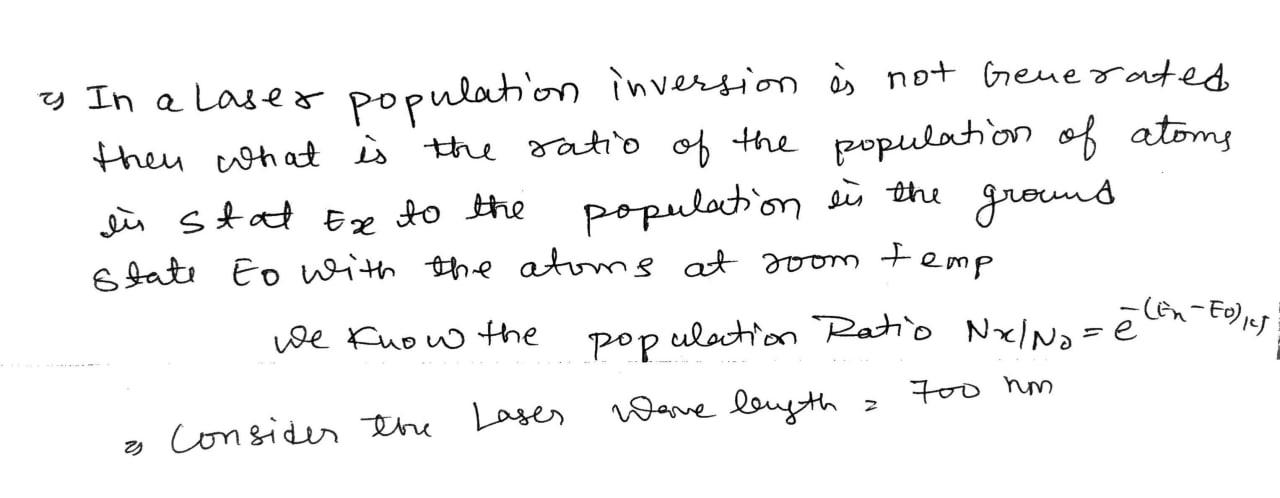 ⇒ In a Laser population inversion is not Generated
then what is the ratio of the population of atoms
in stat Ex to the population in the ground
state E0 with the atoms at room temp
we know the population Ratio Nx/N0 = e^-(En-E0)/KT
⇒ Consider the Laser wave length = 700 nm